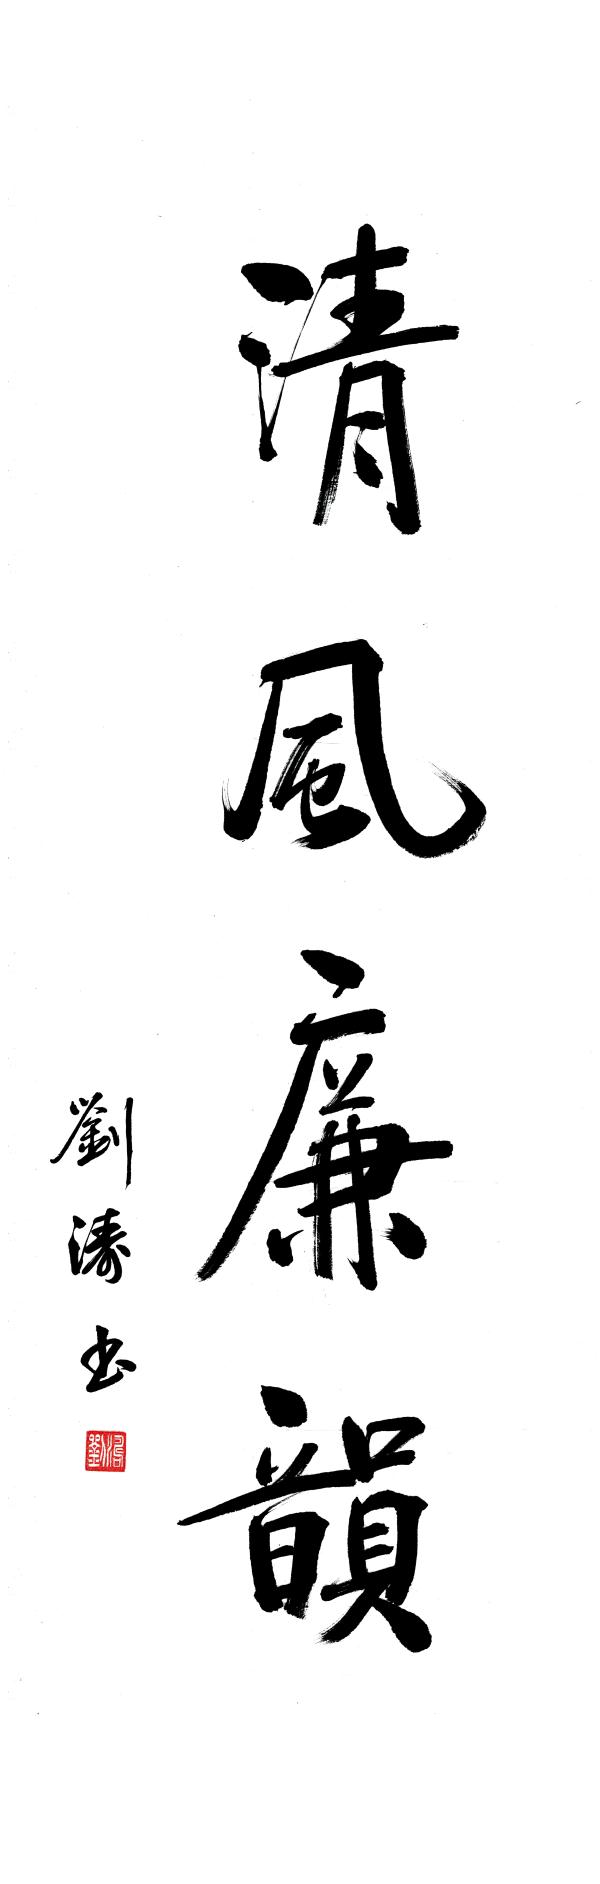 清風廉韻
劉濤书
劉濤